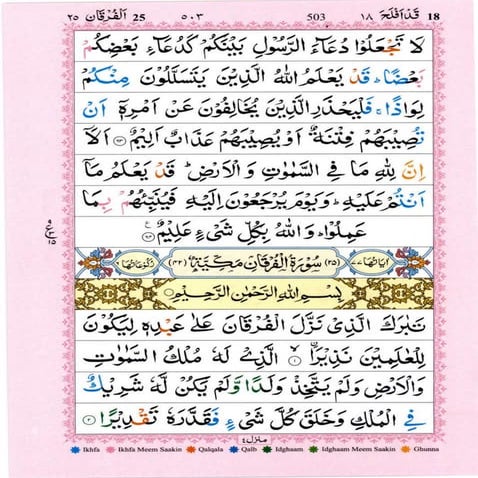 ۲۵ اَلْفُرْقَان 25 ۵۰۳ 503 قَدْ اَفْلَحَ ۱۸ 18
لَا تَجْعَلُوْا دُعَآءَ الرَّسُوْلِ بَيْنَكُمْ كَدُعَآءِ بَعْضِكُمْ
بَعْضًا ؕ قَدْ يَعْلَمُ اللّٰهُ الَّذِيْنَ يَتَسَلَّلُوْنَ مِنْكُمْ
لِوَاذًا ۚ فَلْيَحْذَرِ الَّذِيْنَ يُخَالِفُوْنَ عَنْ اَمْرِهٖۤ اَنْ
تُصِيْبَهُمْ فِتْنَةٌ اَوْ يُصِيْبَهُمْ عَذَابٌ اَلِيْمٌ ﴿۶۳﴾ اَلَاۤ
اِنَّ لِلّٰهِ مَا فِي السَّمٰوٰتِ وَ الْاَرْضِ ؕ قَدْ يَعْلَمُ مَاۤ
اَنْتُمْ عَلَيْهِ ؕ وَ يَوْمَ يُرْجَعُوْنَ اِلَيْهِ فَيُنَبِّئُهُمْ بِمَا
عَمِلُوْا ؕ وَ اللّٰهُ بِكُلِّ شَيْءٍ عَلِيْمٌ ﴿۶۴﴾
اٰيَاتُهَا ۷۷ (۲۵) سُوْرَةُ الْفُرْقَانِ مَكِّيَّةٌ (۴۲) رُكُوْعَاتُهَا ۶
بِسْمِ اللّٰهِ الرَّحْمٰنِ الرَّحِيْمِ
تَبٰرَكَ الَّذِيْ نَزَّلَ الْفُرْقَانَ عَلٰى عَبْدِهٖ لِيَكُوْنَ
لِلْعٰلَمِيْنَ نَذِيْرًا ۙ﴿۱﴾ الَّذِيْ لَهٗ مُلْكُ السَّمٰوٰتِ
وَ الْاَرْضِ وَ لَمْ يَتَّخِذْ وَلَدًا وَّ لَمْ يَكُنْ لَّهٗ شَرِيْكٌ
فِي الْمُلْكِ وَ خَلَقَ كُلَّ شَيْءٍ فَقَدَّرَهٗ تَقْدِيْرًا ﴿۲﴾
منزل ٤
Ikhfa Ikhfa Meem Saakin Qalqala Qalb Idghaam Idghaam Meem Saakin Ghunna